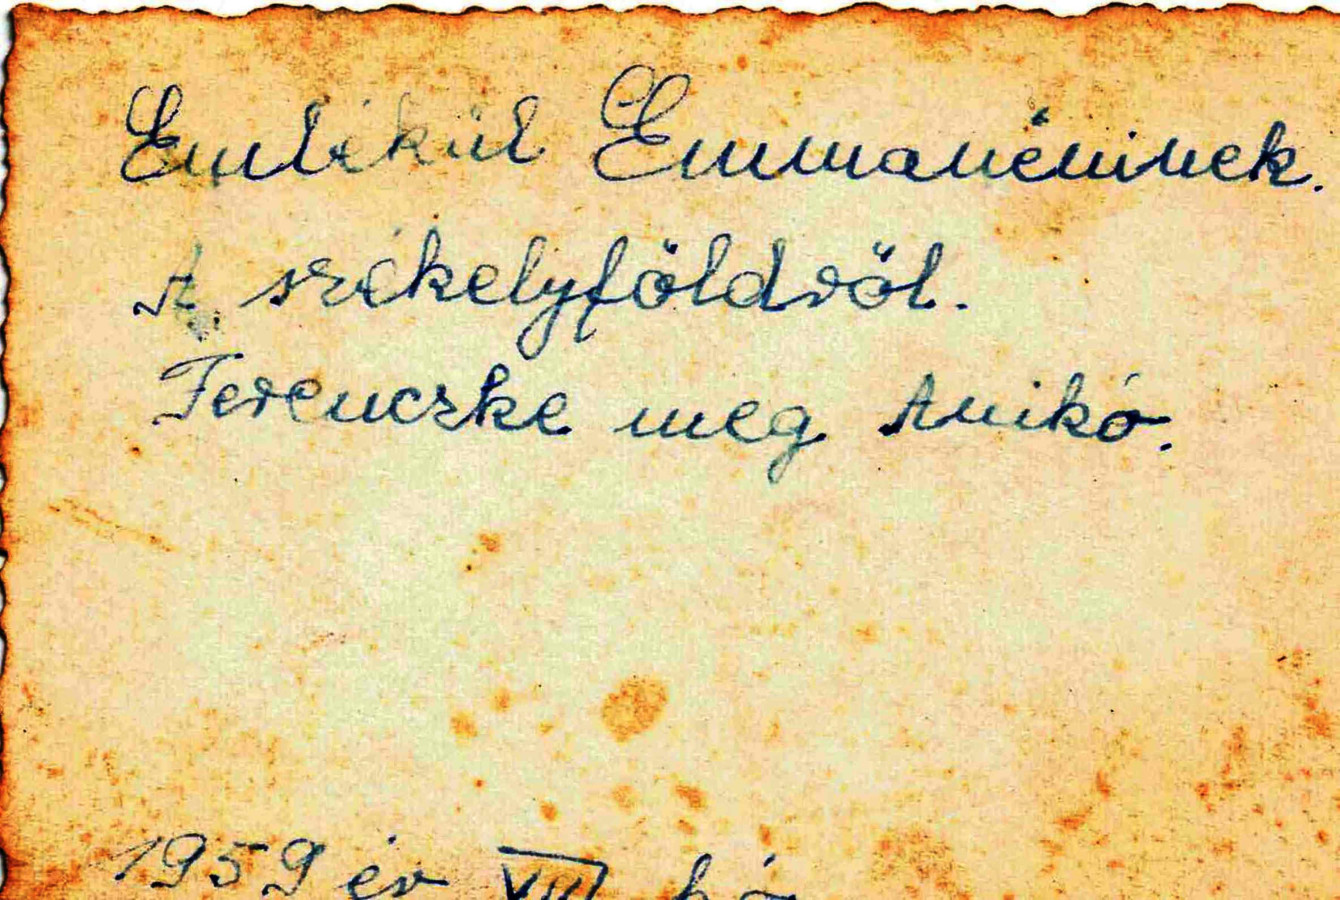 Emlékül Emmanéninek.
A székelyföldröl.
Ferenczke meg Anikó.
1959 év VII hó